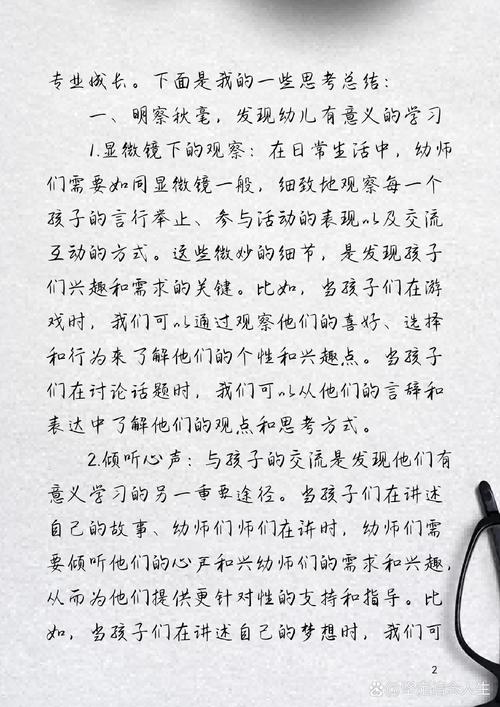 专业成长。下面是我的一些思考总结：
一、明察秋毫，发现幼儿有意义的学习
1.显微镜下的观察：在日常生活中，幼师
们需要如同显微镜一般，细致地观察每一个
孩子的言行举止、参与活动的表现以及交流
互动的方式。这些微妙的细节，是发现孩子
们兴趣和需求的关键。比如，当孩子们在游
戏时，我们可以通过观察他们的喜好、选择
和行为来了解他们的个性和兴趣点。当孩子
们在讨论话题时，我们可以从他们的言辞和
表达中了解他们的观点和思考方式。
2.倾听心声：与孩子的交流是发现他们有
意义学习的另一重要途径。当孩子们在讲述
自己的故事、幼师们师们在讲时，幼师们需
要倾听他们的心声和兴幼师们的需求和兴趣，
从而为他们提供更针对性的支持和指导。比
如，当孩子们在讲述自己的梦想时，我们可
2